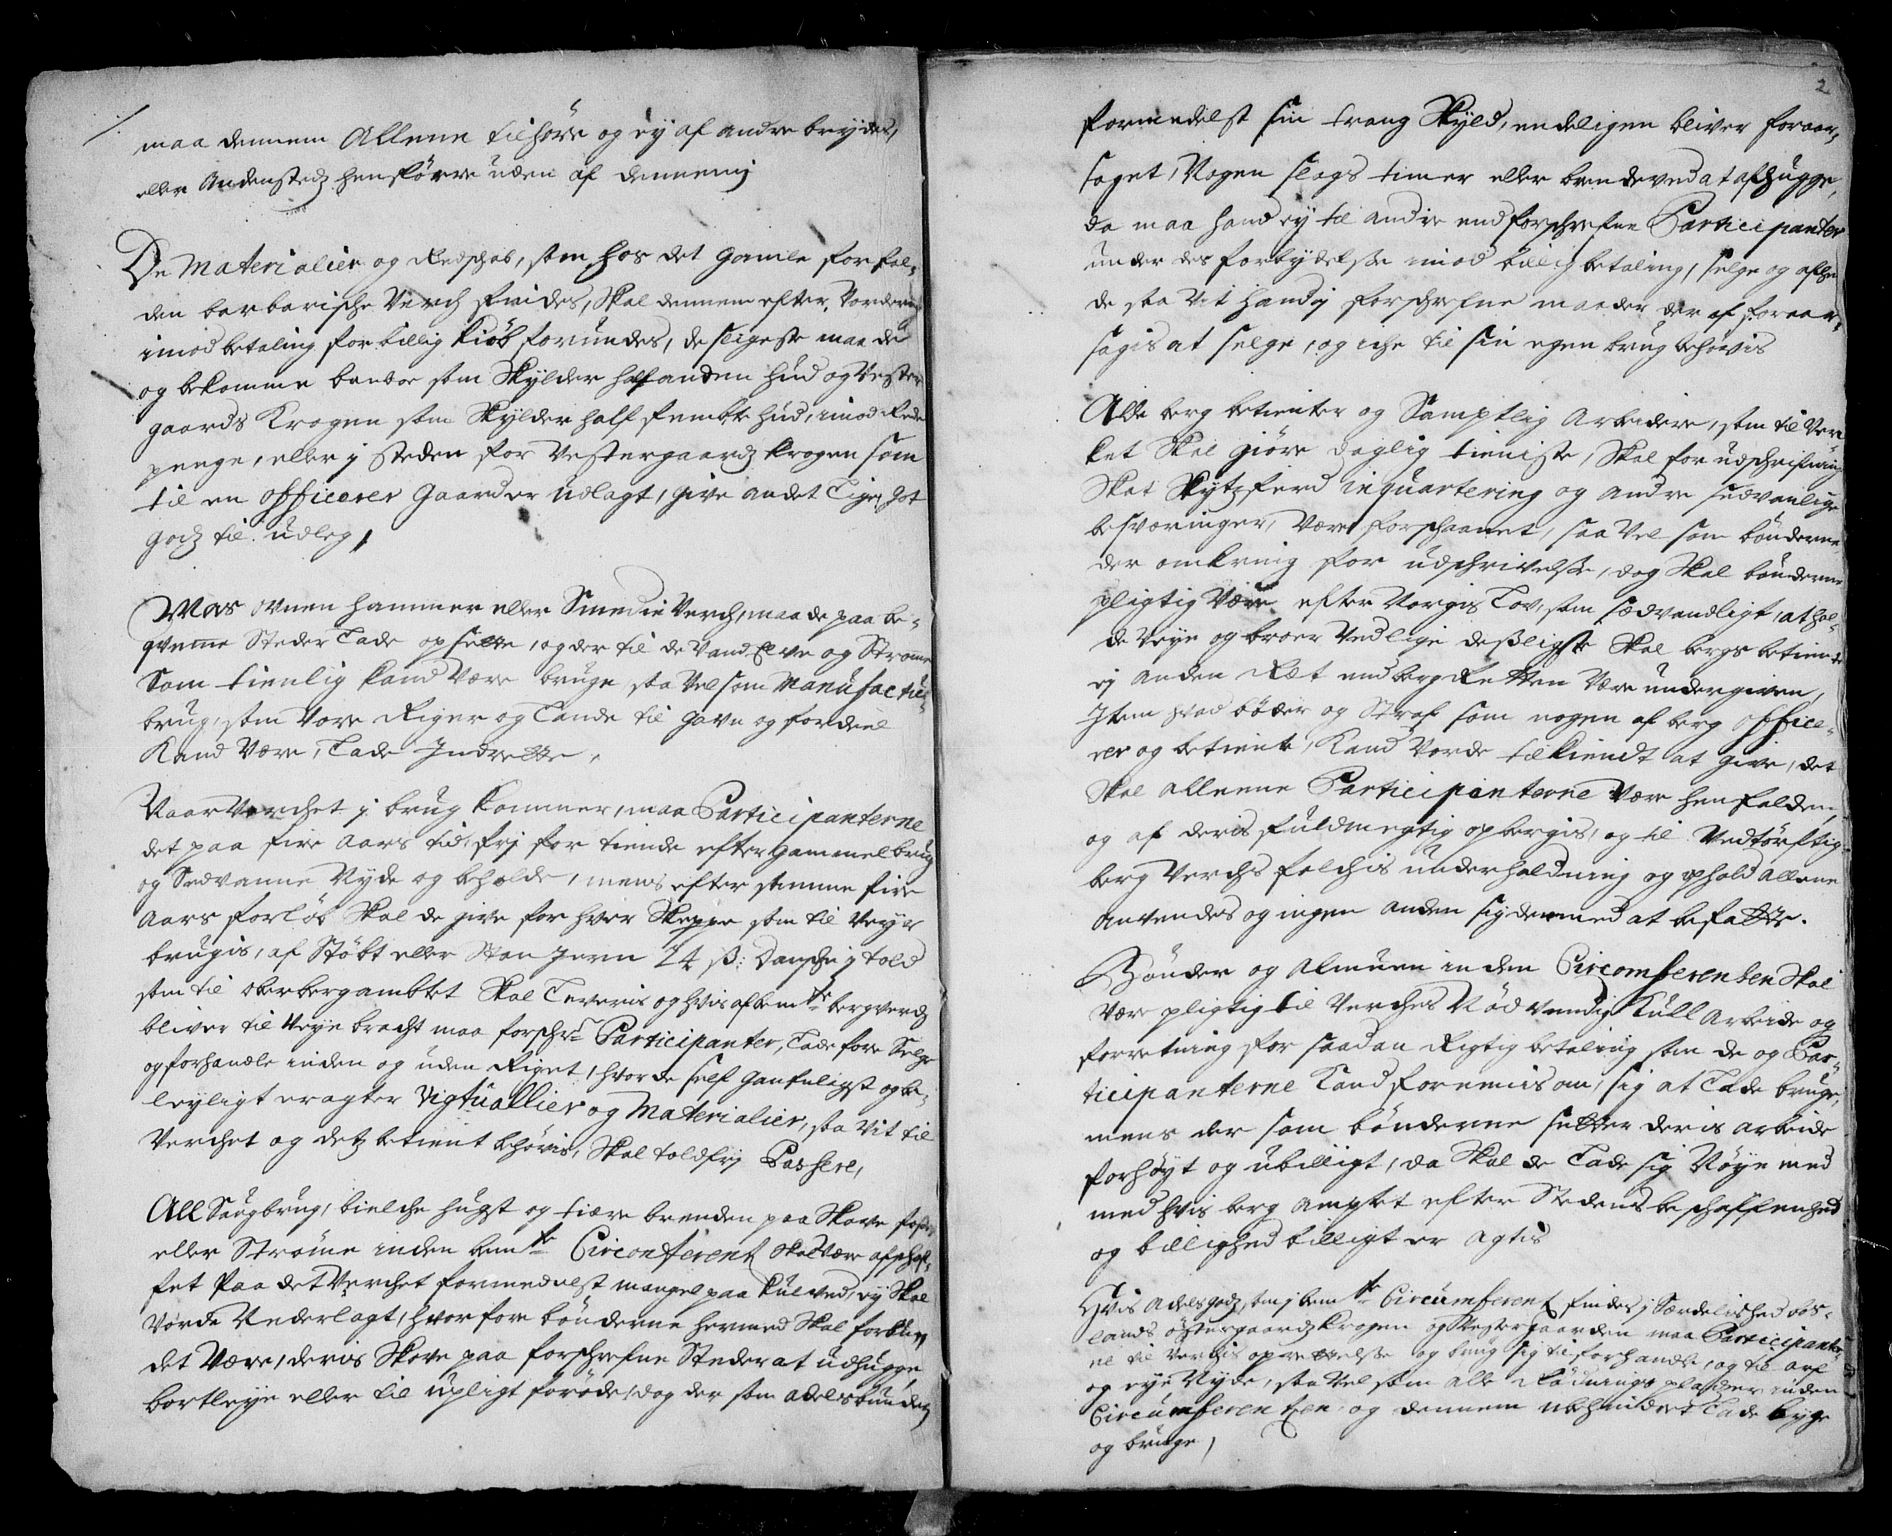 maa dennem Allene tilhöre og ey af andre brydes,
eller Andenstedz henføre uden af dennem
De Materialier og Redschab, som hos det gamle forfal-
den barbarische Verch findes, Skal dennem efter Vordering
imod betaling for billig Kiöb forundes, desligeste maa de
og bekomme som Skylder half anden hud og Vester
gaards Krogen som Skylder half fembte hud, imod Rede
penge, eller j steden for Vestergaardz Krogen som
til en officerer Gaard er Udlagt, give andet Lige Got
Godz til udleg,
Mas ovnen hammer eller Smedie Verch, maa de paa be-
qvemme Steder Lade opsette, og der til de Vand Elve og Strömme
Som tienlig Kand Være bruge, saa Vel som Manufactur-
brug, som Vore Riger og Lande til gavn og fordeel
Kand Være, Lade Indrette,
Naar Verchet j brug kommer, maa Participanterne
det paa fire Aars tid, frj for tiende efter gammel brug
og Sedvanne Nyde og beholde, mens efter samme fire
Aars forlöb Skal de give for hver Skeppe som til Veyes
brugis, af Støbt eller Stan Jern 24 ß: Dansche j told
som til oberbergambtet Skal Leveris og hvis af bem.te bergverch
bliver til Veye bracht maa forschr.ne Participanter, Lade före Selge
og forhandle inden og uden Riget, hvor de self gaufuligst og be-
leyligt eragter Vigtuallier og Materialier, saa Vit til
Verchet og detz betient behövis, Skal toldfrj Passere,
All Saugbrug, bielche hugst og tiære brenden paa Skove fosser
eller Strömme inden bem.te Circonferentz Skal Være afschaf-
fet Paa det Verchet formedelst mangel paa Kulved, ey Skal
Vorde Nederlagt, hvorfore bönderne hermed Skal forbu-
det Være, deris Skove paa forschrefne Steder at udhugge
bortleye eller til upligt foröde, dog der som adelsbunder
2
formedelst sin trang Skyld, endeligen bliver foraar-
saget, Nogen slags timer eller brendeved at afhugge,
da maa hand ey til andre end forschrefne Participanter
under des forbydelse imod billig betaling, selge og afhen-
de saa Vit hand j forschrefne maader der af foraar-
sagis at selge, og iche til sin egen brug behövis
Alle berg betienter og Samptlig Arbeidere, som til Ver-
ket Skal giöre daglig tieniste, Skal for udschrifning
Skat Skytzferd inquartering og andre sedvanlige
besværinger, Være forschaanet, saa Vel som bönderne
der omkring for udschrivelse, dog Skal bönderne
pligtig Være efter Norgis Lov, som sædvandligt, at hol-
de Veye og broer Vedlige desligeste Skal bergs betiente
ej anden Ræt end bergRetten Være undergiven,
Item hvad böder og Straf som nogen af berg office-
rer og betiente, Kand Vorde tilkiendt at give, det
Skal alleene Participanterne Være henfalden,
og af deris fuldmegtig opbergis, og til Nedtörftig
berg Verchs folchis underholdning og ophold Allene
anvendes og ingen anden sig dermed at befatte.
Bönder og Almuen inden Circomferentzen Skal
Være pligtig til Verches Nödvendig Kull Arbeide og
forretning for saadan Rigtig betaling som de og Par-
ticipanterne Kand forenis om, sig at Lade bruge,
mens der som bönderne setter deris arbeide
forhöyt og ubilligt, da Skal de Lade sig Nöye med
med hvis berg Amptet efter Stedens beschaffenhed
og billighed billigt er Agtis
Hvis Adelsgodz, som j bem.te Circumferentz findes j Særdelished obs-
lands östergaardz Krogen og Vestergaarden maa Participanter-
ne til Verchs oprettelse og brug sig tilforhandle, og til arf
og eye Nyde, saa Vel som alle Rödnings pladzer inden
Circumferentzen og dennem ubehindret Lade byge
og bruge,